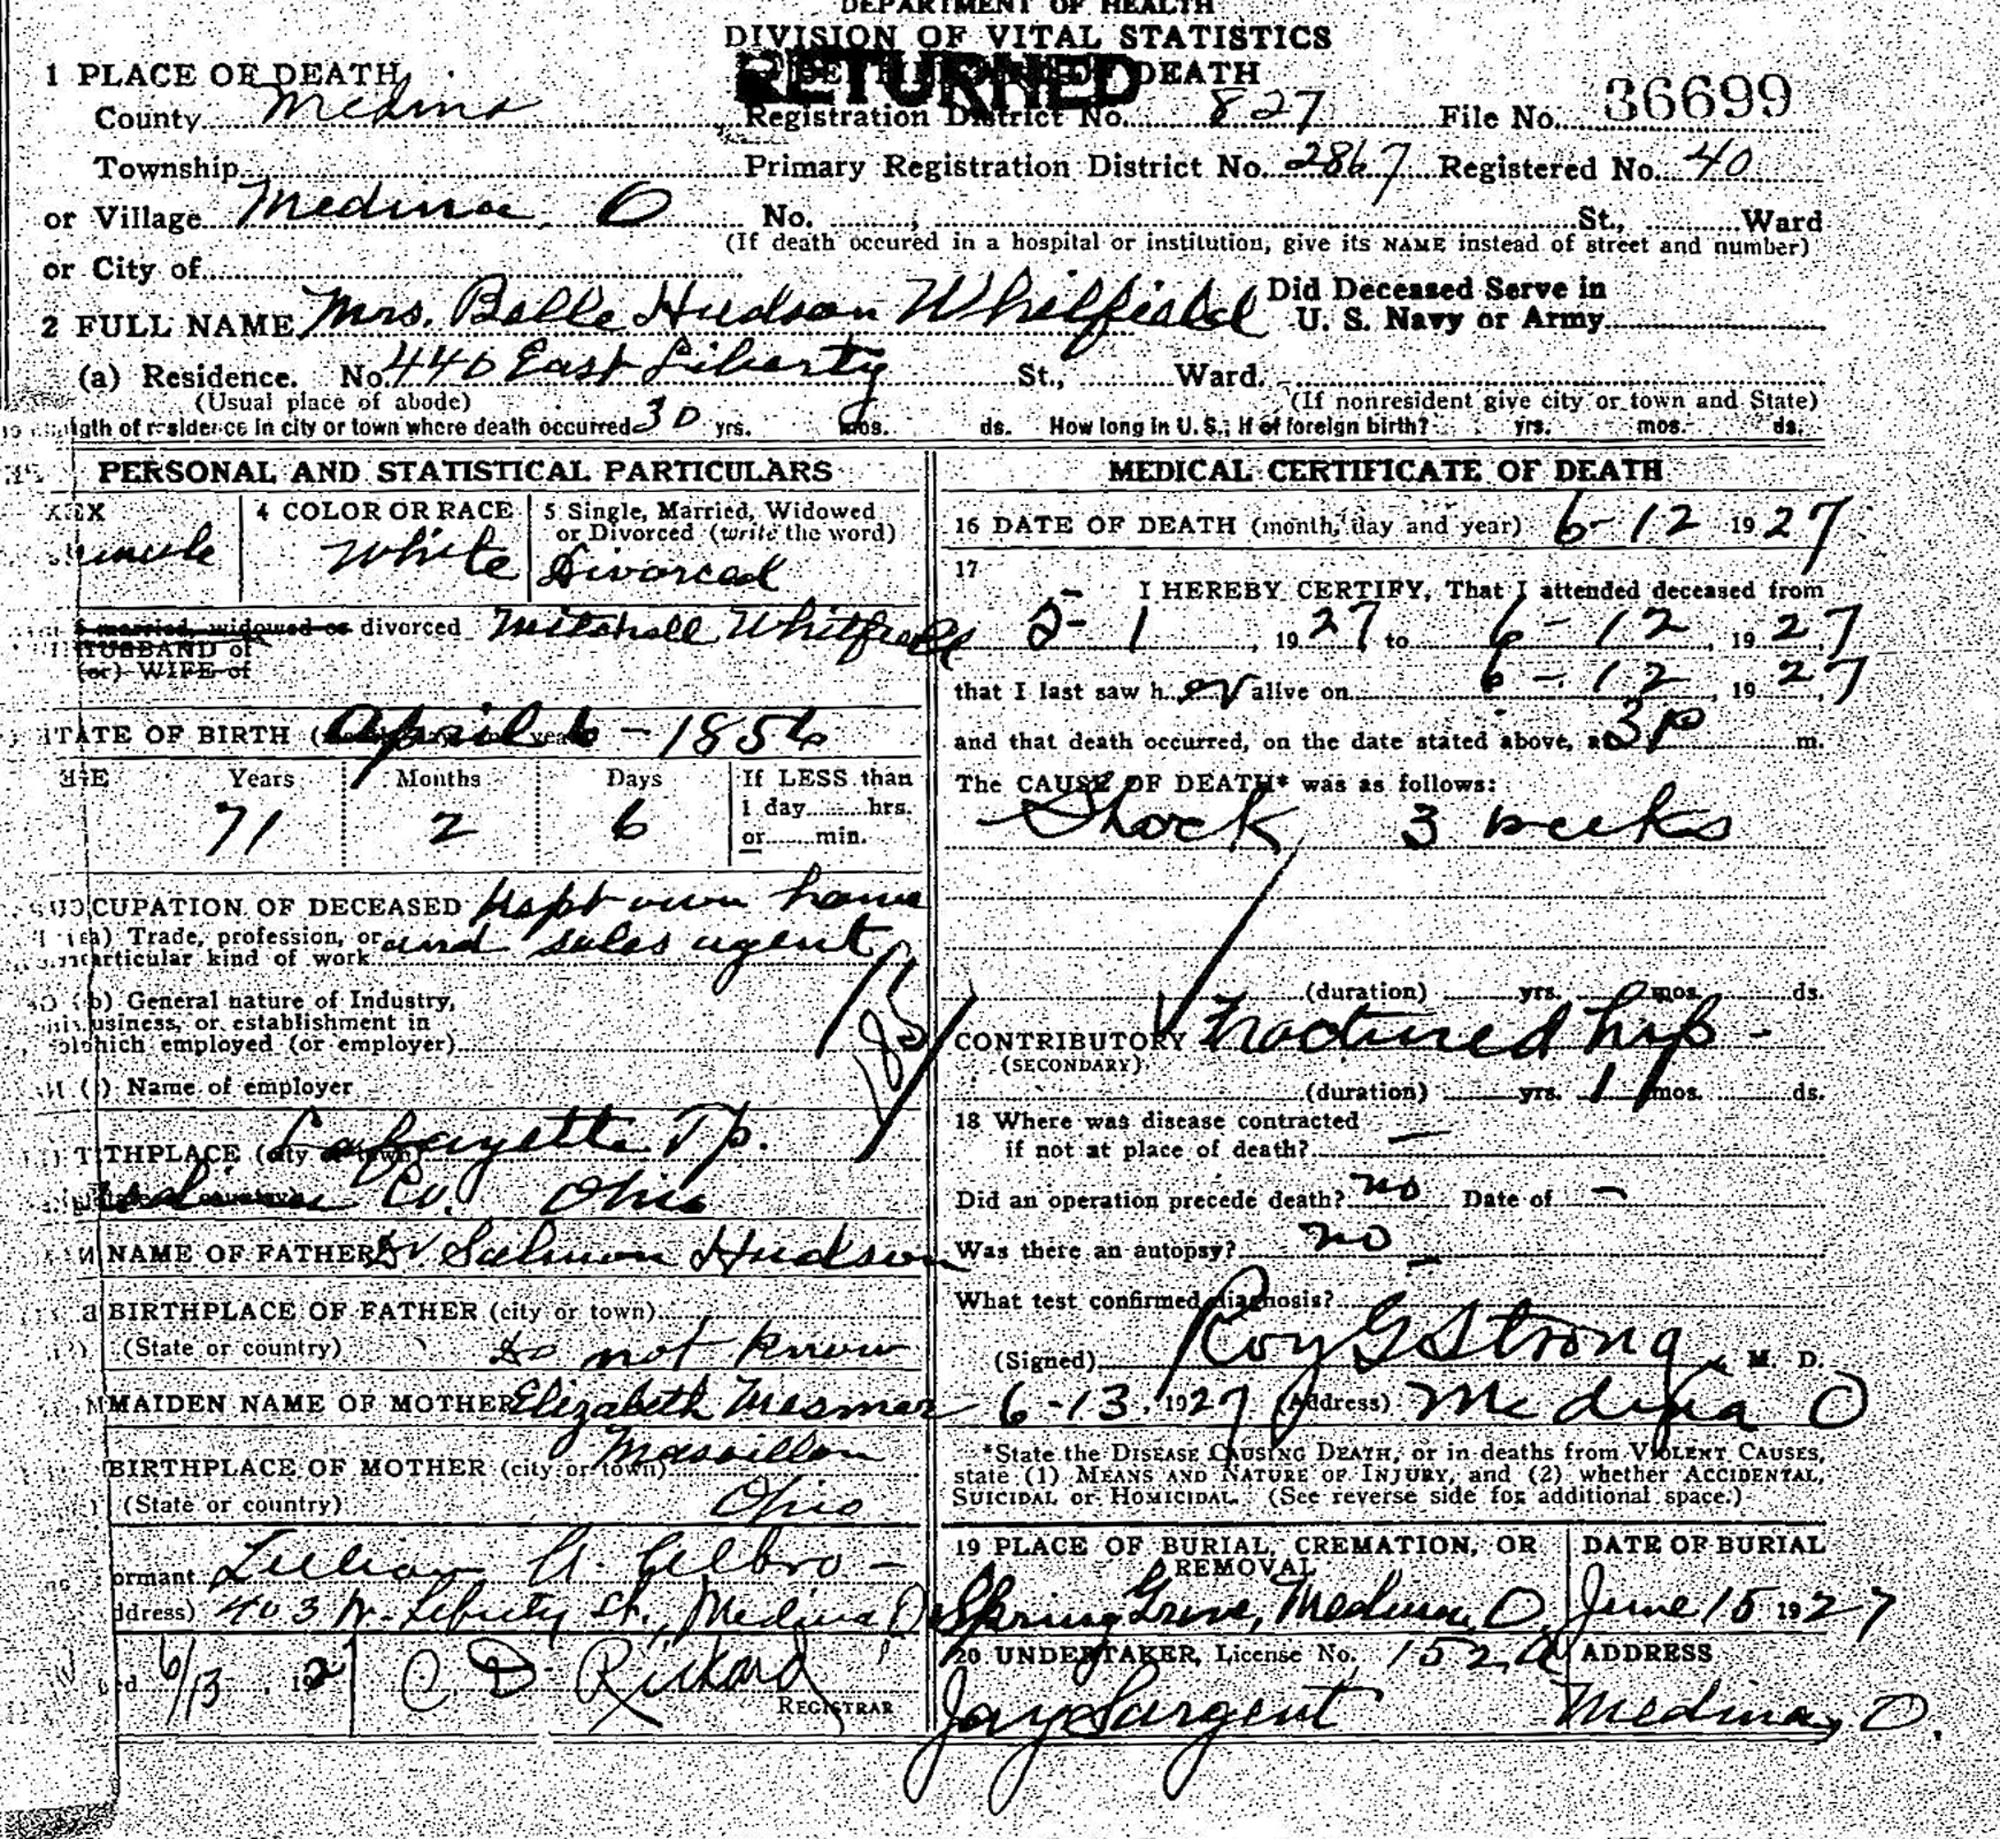 DEPARTMENT OF HEALTH
DIVISION OF VITAL STATISTICS
RETURNED DEATH
1 PLACE OF DEATH
County Medina Registration District No. 827 File No. 36699
Township Primary Registration District No. 2867 Registered No. 40
or Village Medina, O No. , St., Ward
(If death occured in a hospital or institution, give its NAME instead of street and number)
or City of
2 FULL NAME Mrs. Belle Hudson Whitfield Did Deceased Serve in
U. S. Navy or Army
(a) Residence. No. 440 East Liberty St., Ward.
(Usual place of abode) (If nonresident give city or town and State)
Length of residence in city or town where death occurred 30 yrs. mos. ds. How long in U. S., if of foreign birth? yrs. mos. ds.
PERSONAL AND STATISTICAL PARTICULARS
SEX 4 COLOR OR RACE 5 Single, Married, Widowed
or Divorced (write the word)
White Divorced
married, widowed or divorced Mitchell Whitfield
HUSBAND of
(or) WIFE of
DATE OF BIRTH April 6 - 1856
AGE Years Months Days If LESS than
1 day hrs.
or min.
71 2 6
OCCUPATION OF DECEASED Kept own home
(a) Trade, profession, or and sales agent
particular kind of work
(b) General nature of Industry,
business, or establishment in
which employed (or employer)
185
Name of employer
BIRTHPLACE (city or town) Lafayette Tp.
Medina Co. Ohio
NAME OF FATHER Dr. Salmon Hudson
BIRTHPLACE OF FATHER (city or town)
(State or country) do not know
MAIDEN NAME OF MOTHER Elizabeth Mesmer
BIRTHPLACE OF MOTHER (city or town) Massillon
(State or country) Ohio
Informant Lillian A. Gilbro -
(Address) 403 N. Liberty St., Medina O
Filed 6/13, 192 C D Rickard
REGISTRAR
MEDICAL CERTIFICATE OF DEATH
16 DATE OF DEATH (month, day and year) 6-12 1927
17
I HEREBY CERTIFY, That I attended deceased from
5-1, 1927 to 6-12, 1927
that I last saw her alive on 6-12, 1927
and that death occurred, on the date stated above, at 3P m.
The CAUSE OF DEATH* was as follows:
Shock 3 weeks
(duration) yrs. mos. ds.
CONTRIBUTORY Fractured hip -
(SECONDARY)
(duration) yrs. 1 mos. ds.
18 Where was disease contracted
if not at place of death? —
Did an operation precede death? no Date of -
Was there an autopsy? no
What test confirmed diagnosis?
(Signed) Roy G Strong, M. D.
6-13, 1927 (Address) Medina O
*State the DISEASE CAUSING DEATH, or in deaths from VIOLENT CAUSES,
state (1) MEANS AND NATURE OF INJURY, and (2) whether ACCIDENTAL,
SUICIDAL or HOMICIDAL. (See reverse side for additional space.)
19 PLACE OF BURIAL, CREMATION, OR DATE OF BURIAL
REMOVAL
Spring Grove, Medina, O June 15 1927
20 UNDERTAKER, License No. 152 A ADDRESS
Jay Sargent Medina, O.